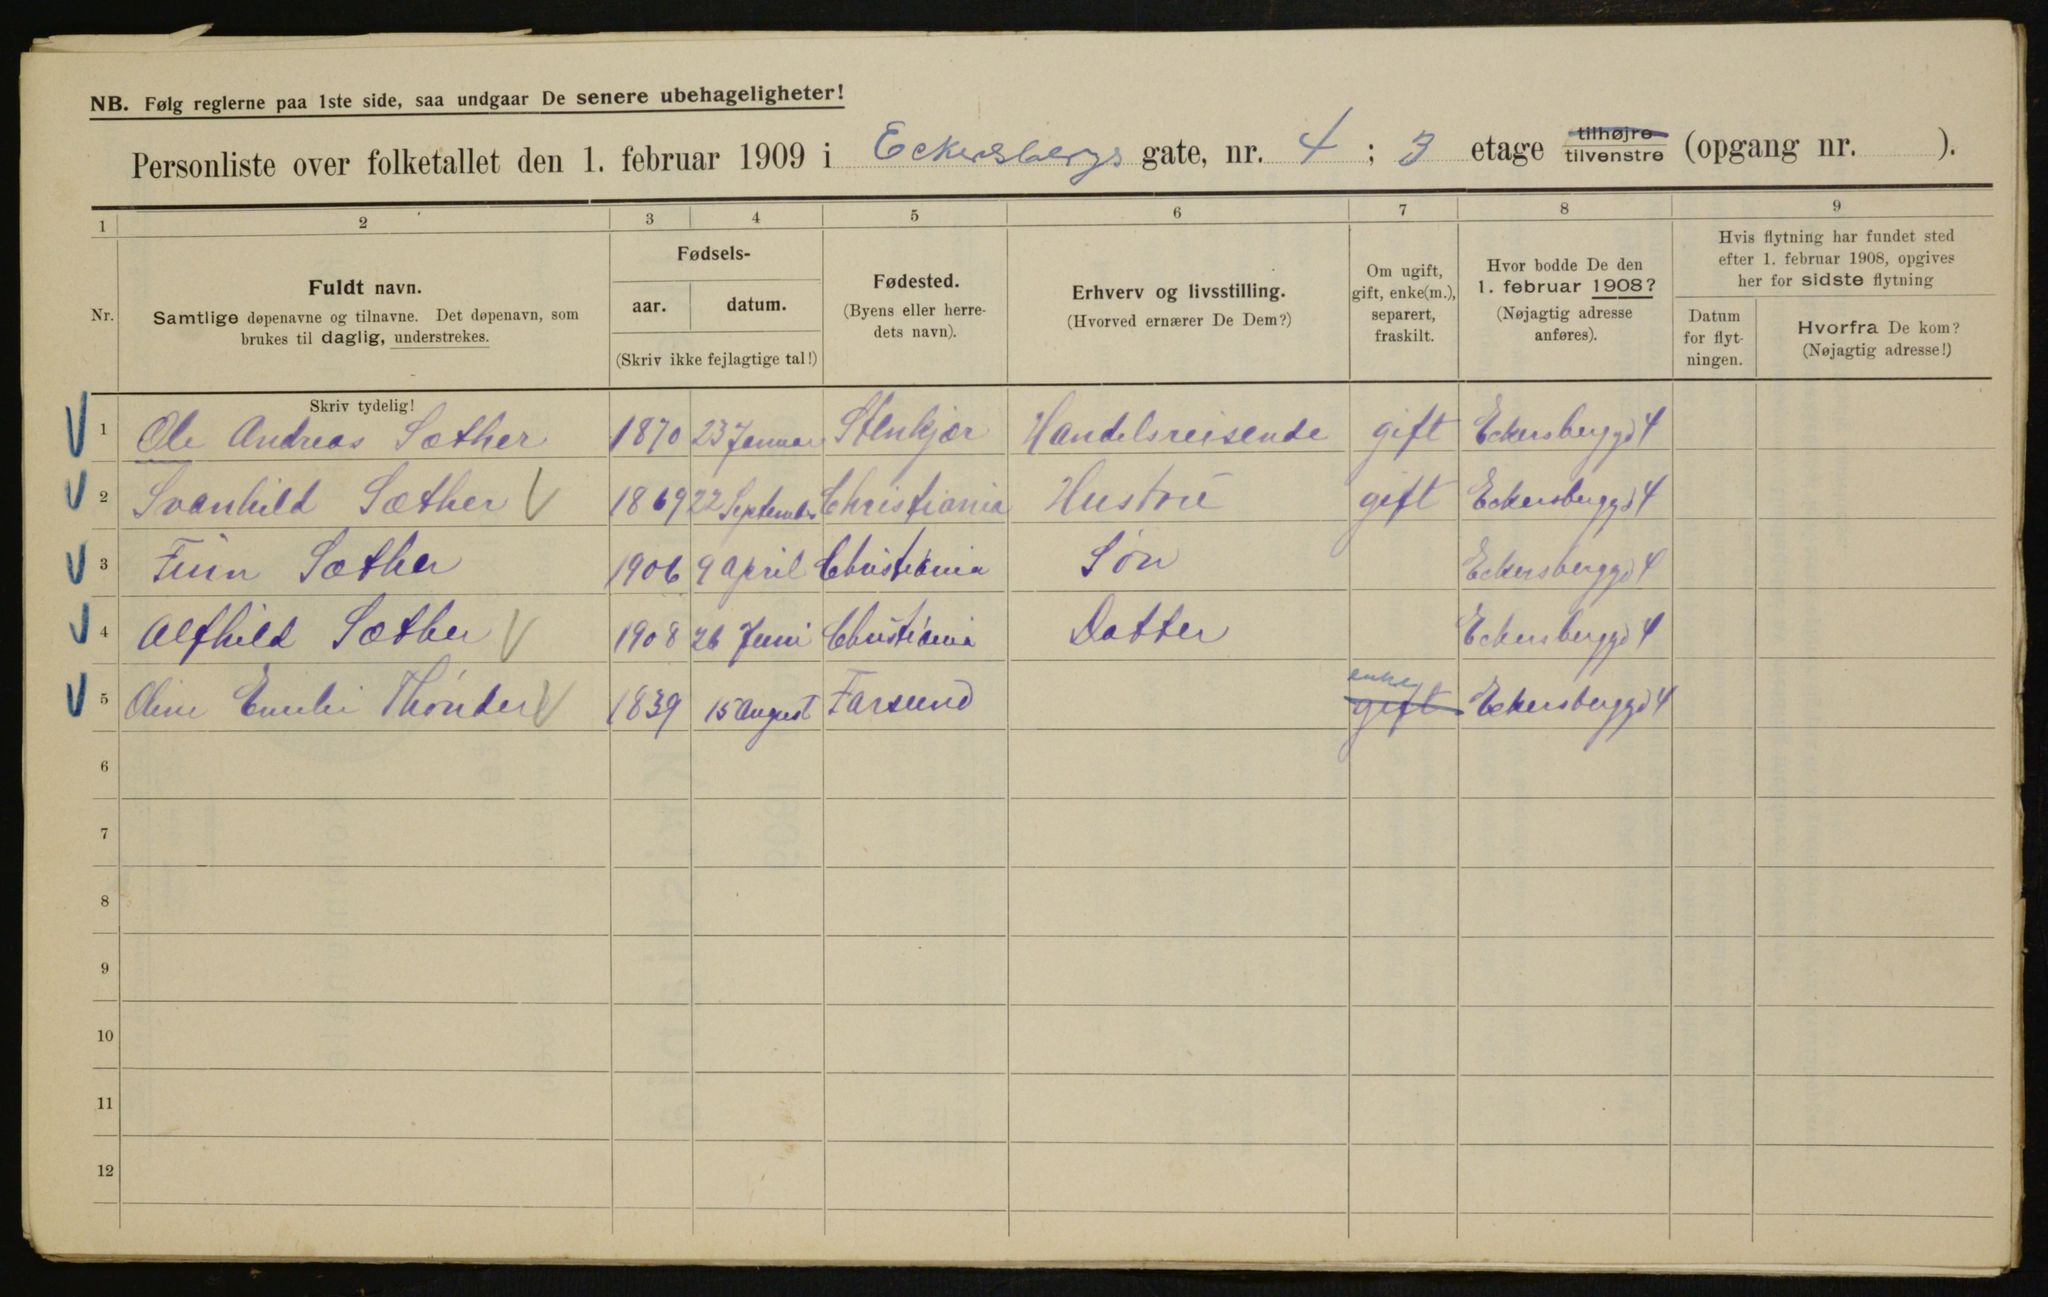 NB. Følg reglerne paa 1ste side, saa undgaar De senere ubehageligheter!
Personliste over folketallet den 1. februar 1909 i Eckersbergs gate, nr. 4 ; 3 etage tilhøjre tilvenstre (opgang nr. ).
1 2 3 4 5 6 7 8 9
Nr.
Fuldt navn.
Samtlige døpenavne og tilnavne. Det døpenavn, som
brukes til daglig, understrekes.
Fødsels-
aar. datum.
(Skriv ikke fejlagtige tal!)
Fødested.
(Byens eller herre-
dets navn).
Erhverv og livsstilling.
(Hvorved ernærer De Dem?)
Om ugift,
gift, enke(m.),
separert,
fraskilt.
Hvor bodde De den
1. februar 1908?
(Nøjagtig adresse
anføres).
Hvis flytning har fundet sted
efter 1. februar 1908, opgives
her for sidste flytning
Datum
for flyt-
ningen.
Hvorfra De kom?
(Nøjagtig adresse!)
Skriv tydelig!
1 Ole Andreas Sæther 1870 23 Januar Stenkjær Handelsreisende gift Eckersberggd 4
2 Svanhild Sæther 1869 22 September Christiania Hustru gift Eckersberggd 4
3 Finn Sæther 1906 9 April Christiania Søn Eckersberggd 4
4 Alfhild Sæther 1908 26 Juni Christiania Datter Eckersberggd 4
enke
5 Oline Emilie Thönder 1839 15 August Farsund gift Eckersberggd 4
6
7
8
9
10
11
12